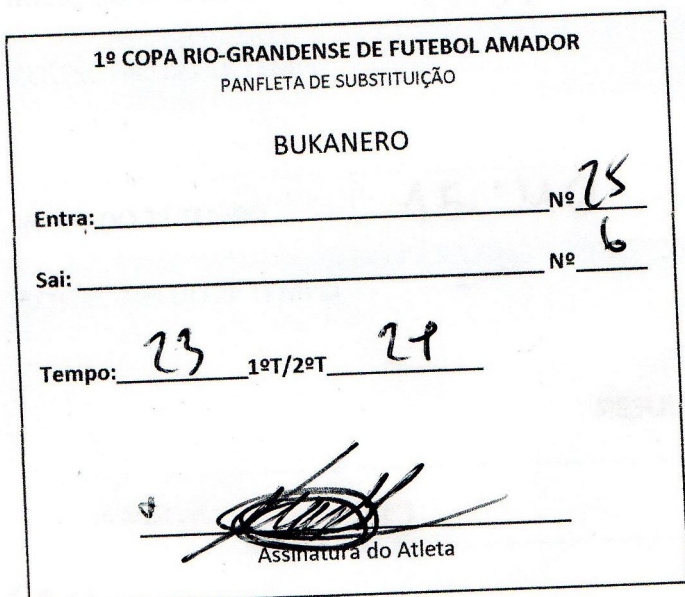 1º COPA RIO-GRANDENSE DE FUTEBOL AMADOR
PANFLETA DE SUBSTITUIÇÃO
BUKANERO
Entra: Nº 25
Sai: Nº 6
Tempo: 23 1ºT/2ºT 2T
Assinatura do Atleta